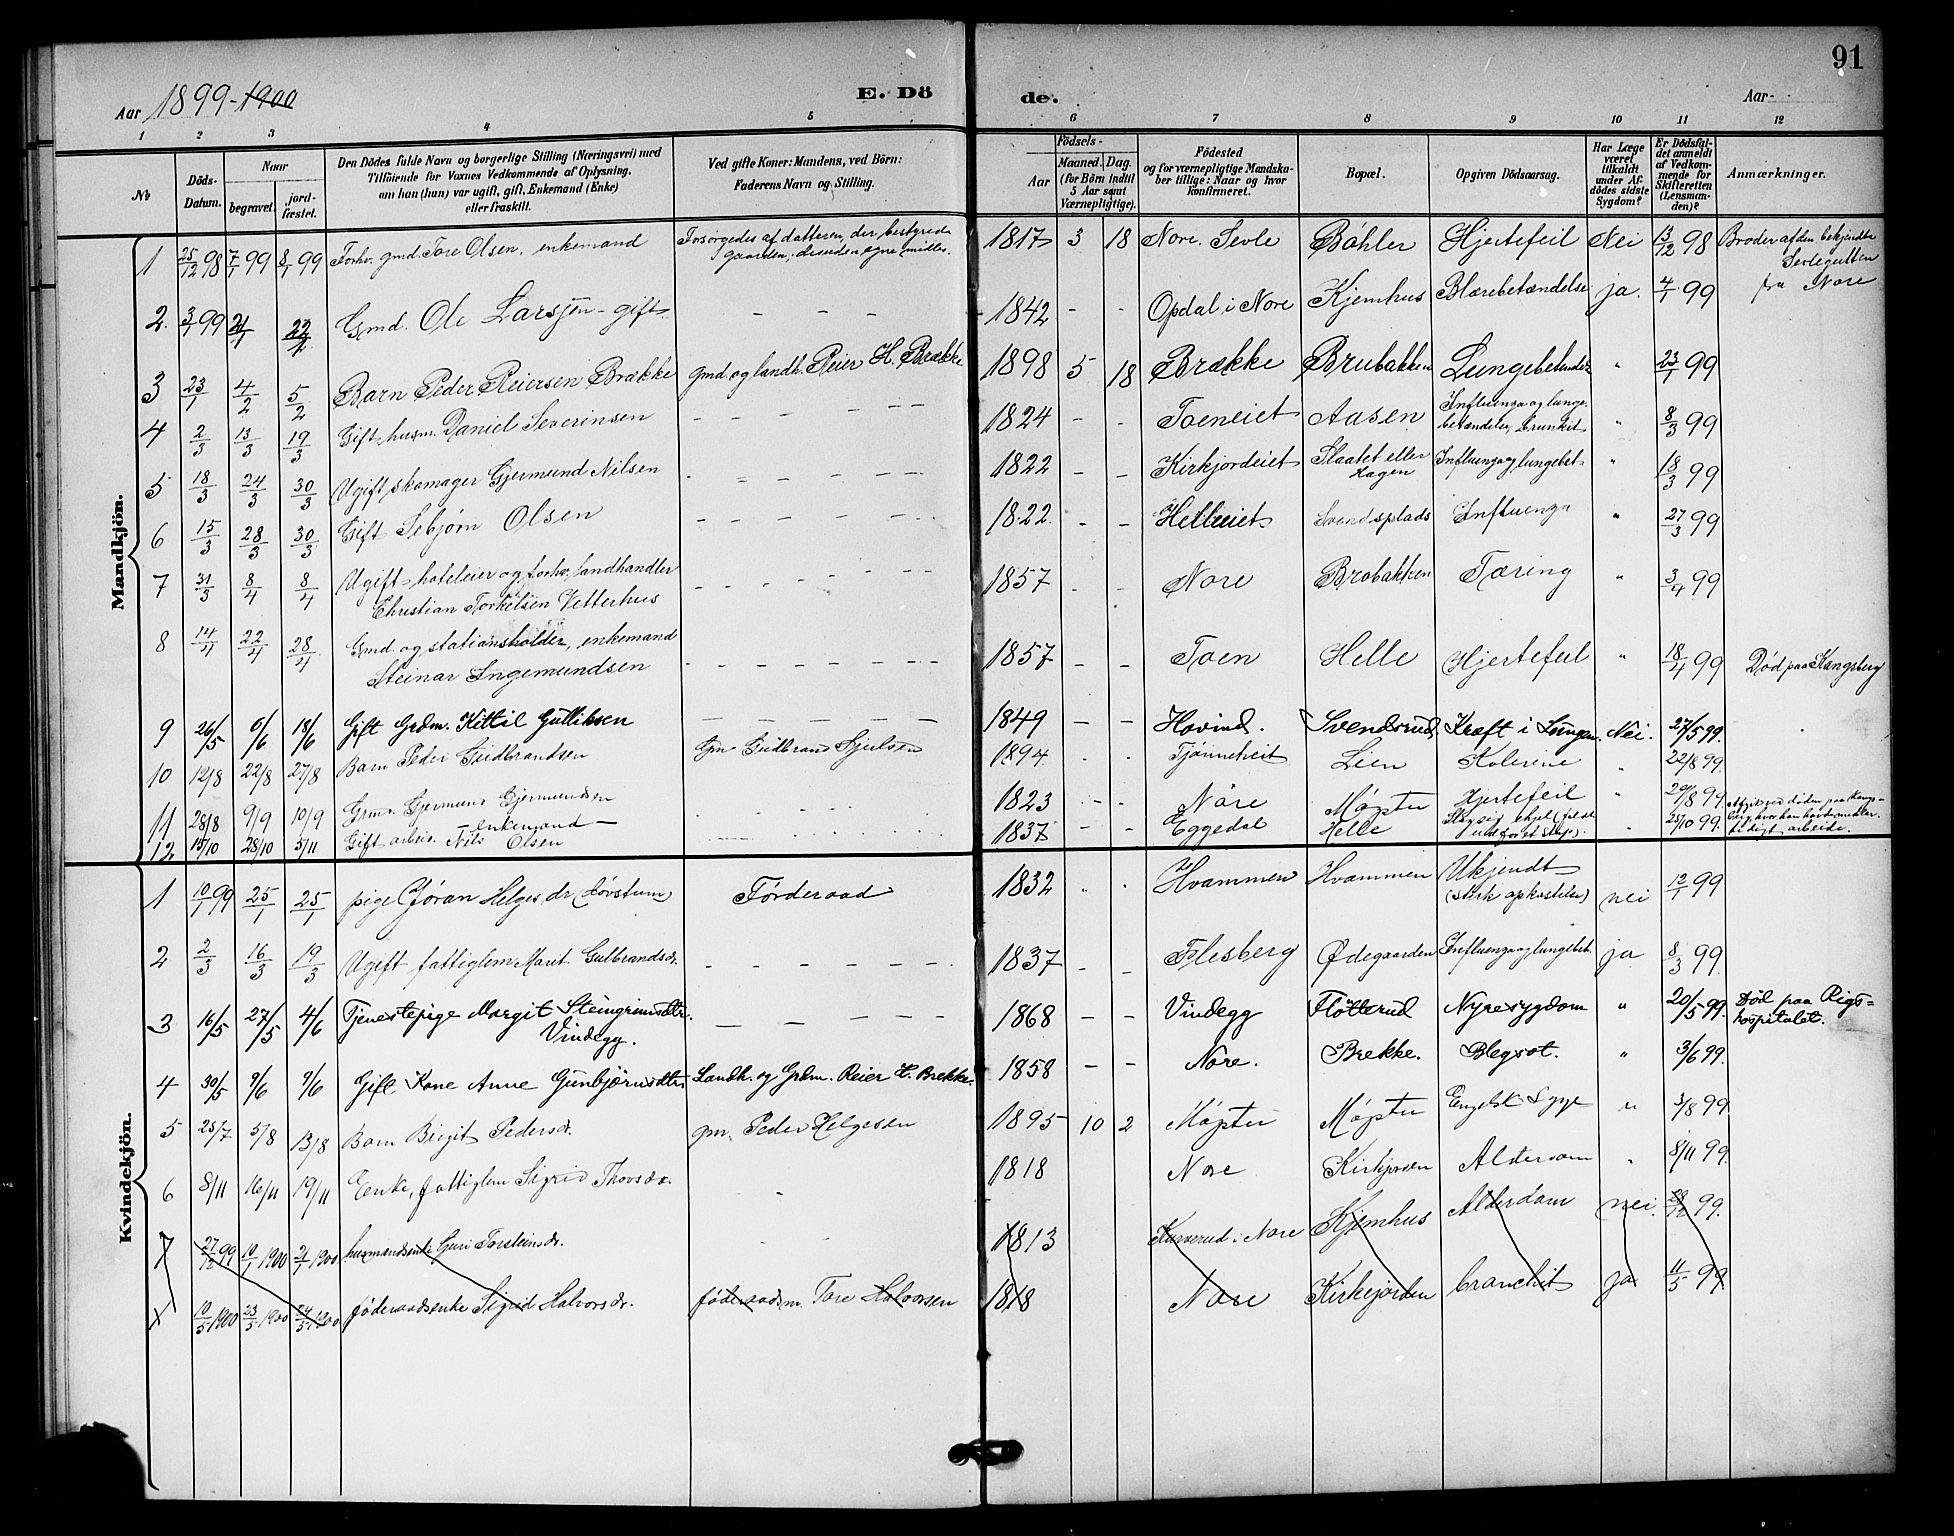 91
Aar 1899-1900
E. Dö
de.
Aar
1 2 3 4 5 6 7 8 9 10 11 12
No
Döds-Datum.
Naar
begravet.
jord-fæstet.
Den Dödes fulde Navn og borgerlige Stilling (Næringsvei) med
Tilföiende for Voxnes Vedkommende af Oplysning,
om han (hun) var ugift, gift, Enkemand (Enke)
eller fraskilt.
Ved gifte Koner: Mandens, ved Börn:
Faderens Navn og Stilling.
Födsels-
Aar
Maaned. Dag.
(for Börn indtil
5 Aar samt
Værnepligtige).
Födested
og for værnepligtige Mandska-
ber tillige: Naar og hvor
konfirmeret.
Bopæl.
Opgiven Dödsaarsag.
Har Læge
været
tilkaldt
under Af-
dödes sidste
Sygdom?
Er Dödsfal-
det anmeldt
af Vedkom-
mende for
Skifteretten
(Lensman-
den)?
Anmærkninger.
Mandkjön.
1 25/12 98 7/1 99 8/1 99 Forhv. gmd. Tore Olsen, enkemand Forsörgedes af datteren, der bestyrede gaarden, desuden egne midler. 1817 3 18 Nore. Sevle Bøhler Hjertefeil Nei 13/12 98 Broder af den bekjendte Sevlegutten fra Nore
2. 3/1 99 21/1 22/2 Gmd. Ole Larssen - gift - - - 1842 - - Opdal i Nore Kjemhus Blærebetændelse ja. 4/1 99
3 23/1 4/2 5/2 Barn Peder Reiersen Brække gmd. og landh. Reier H. Brække 1898 5 18 Brække Brubakken Lungebetændelse " 23/1 99
4 2/3 13/3 19/3 Gift husm. Daniel Severinsen - - - - - 1824 - - Toeneiet Aasen Influenza og lungebetændelse, brunkit " 8/3 99
5 18/3 24/3 30/3 Ugift skomager Gjermund Nilsen - - - - - 1822 - - Kirkjordeiet Slaatet eller Hagen Influenza og lungebet- " 18/3 99
6 15/3 28/3 30/3 Gift Sebjørn Olsen - - - - - 1822. - - Helleeiet Svendsplads Influenza " 27/3 99
7 31/3 8/4 8/4 Ugift hoteleier og forhv. landhandler
Christian Torkelsen Vetterhus - - - - - 1857 - - Nore Brobakken Tæring " 3/4 99
8 14/4 22/4 28/4 Gmd. og stationsholder, enkemand
Steinar Ingemundsen - - - - - 1857 - - Toen Helle Hjertefeil " 18/4 99 Död paa Kongsberg
9 26/5 6/6 18/6 Gift Grdm. Kittil Gulliksen - - - - - 1849 - - Hovind. Svendsrud. Kræft i Lungen. Nei. 27/5 99.
10 12/8 22/8 27/8 Barn Peder Gudbrandsen Gm Gudbrand Sjulsen 1894 - - Tjønneheit Lien Kolerine " 22/8 99.
11 28/8 9/9 10/9 Grmd. Gjermund Gjermundsen
- enkemand - 1823 - - Nore Møpter Hjertefeil " 29/8 99.
12 15/10 28/10 5/11 Gift arbeid. Nils Olsen 1837 Eggedal Helle " 25/10 99.
Kvindekjön.
1 10/1 99 25/1 25/1 pige Gjøran Helgesdr (døvstum) Førderaad 1832 " " Hvammen Hvammen Ukjendt
(sterk opkastelse) nei 12/1 99
2 2/3 16/3 19/3 Ugift fattiglem Marit Gulbrandsdr. - - - - - 1837 - - Flesberg Ødegaarden Influenza og lungebet. ja 8/3 99
3 16/5 27/5 4/6 Tjenestepige Margit Steingrimsdtr.
Vindegg. - - - - - 1868 - - Vindegg Fløtterud Nyresygdom " 20/5 99. Død paa Rigs=
hospitalet.
4 30/5 9/6 9/6 Gift Kone Anne Gunbjørnsdtr. Landh. og Grdm. Reier H. Brekke. 1858 - - Nore. Brekke. Blegsot. " 3/6 99.
5 25/7 5/8 13/8 Barn Birgit Pedersdr. gm. Peder Helgesen 1895 10 2 Møpter Møpter Engelsk Syge " 3/8 99.
6 8/11 16/11 19/11 Enke, fattiglem Sigrid Thovsdr. - - 1818 Nore Kirkjorden Alderdom " 8/11 99.
7 27/12 99 10/1 1900 21/1 1900 husmandsenke Guri Torsteinsdr. - - 1813 Kurverud i Nore Kjemhus Alderdom nei. 28/12 99.
10/5 1900 23/5 1900 24/5 1900 føderaadsenke Sigrid Halvorsdr. føderaadsm. Tore Halvorsen 1818 Nore Kirkejorden bronchit ja 11/5 99